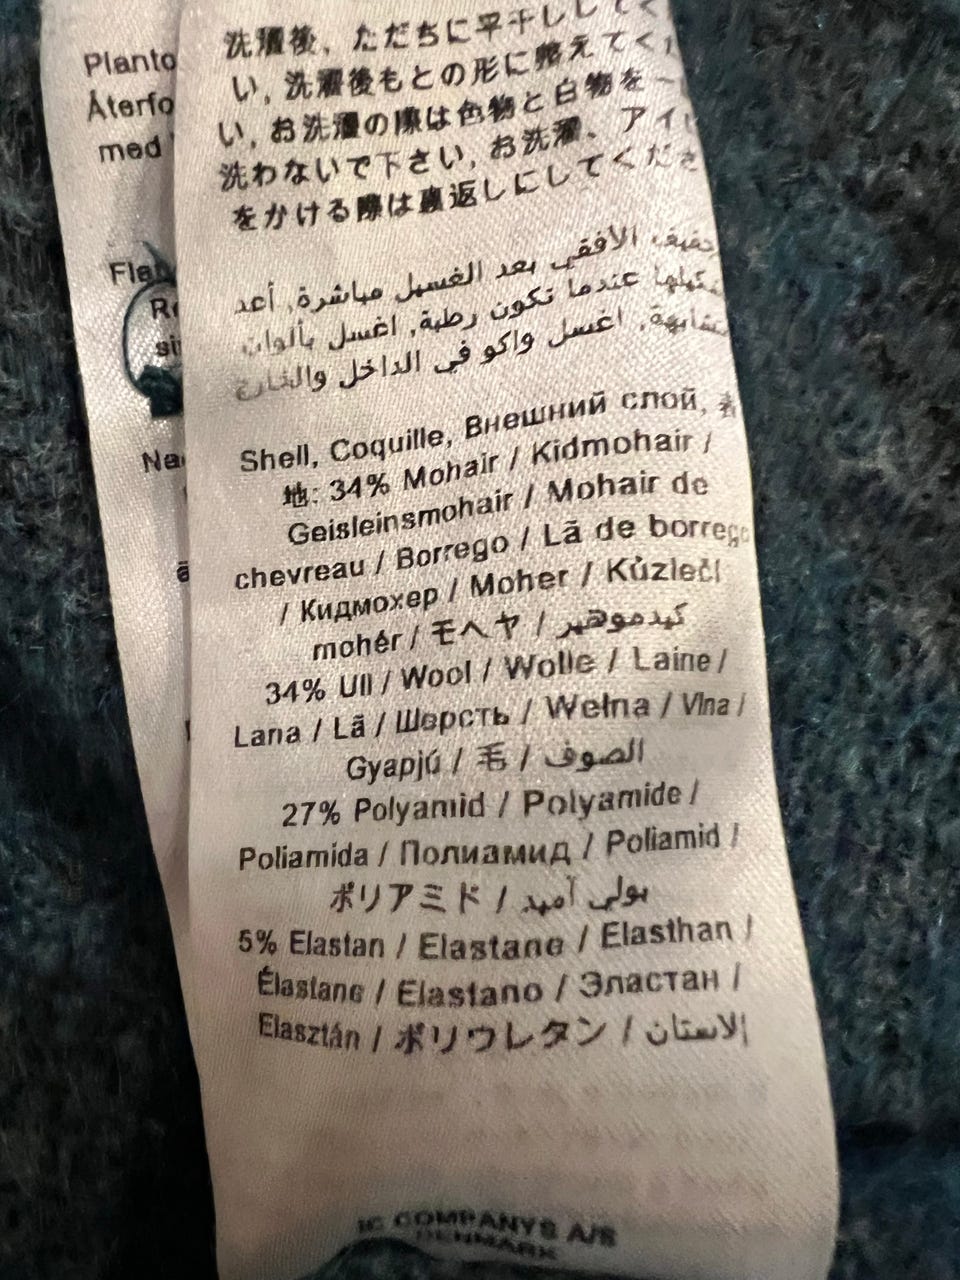 Planto
Återfo
med
Flat
Na
洗濯後、ただちに平干ししてく
い, 洗濯後もとの形に整えてく
い, お洗濯の際は色物と白物を一
洗わないで下さい, お洗濯、アイ
をかける際は裏返しにしてくださ
تجفيف الأفقي بعد الغسيل مباشرة, أعد
عندما تكون رطبة, اغسل بألوان
متشابهة, اغسل واكو في الداخل والخارج
Shell, Coquille, Внешний слой, 表
地: 34% Mohair / Kidmohair /
Geisleinsmohair / Mohair de
chevreau / Borrego / Lã de borrego
/ Кидмохер / Moher / Kůzlečí
mohér / モヘヤ / كيدموهير
34% Ull / Wool / Wolle / Laine /
Lana / Lã / Шерсть / Wełna / Vlna /
Gyapjú / 毛 / الصوف
27% Polyamid / Polyamide /
Poliamida / Полиамид / Poliamid /
ポリアミド / بولي آميد
5% Elastan / Elastane / Elasthan /
Élastane / Elastano / Эластан /
Elasztán / ポリウレタン / الاستان
IC COMPANYS A/S
DENMARK